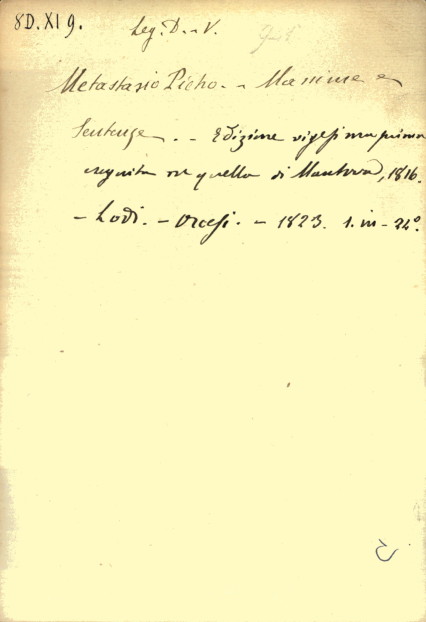 8D. XI 9. Leg. D. - V.
Metastasio Pietro. - Massime e
Sentenze. - Edizione vigesimaprima
eseguita su quella di Mantova, 1816.
- Lodi. - Orcesi. - 1823. 1. in - 24°.